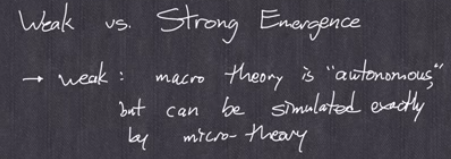 Weak vs. Strong Emergence
→ weak: macro theory is "autonomous,"
but can be simulated exactly
by micro-theory